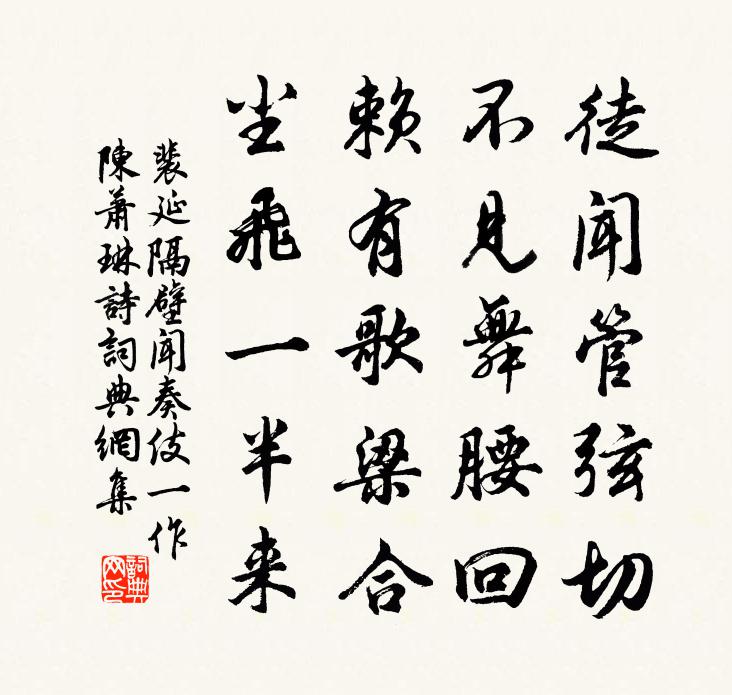 徒闻管弦切
不見舞腰回
賴有歌梁合
尘飛一半来
裴延隔壁闻奏伎一作
陳蕭琳詩詞典網集
詞典
网印